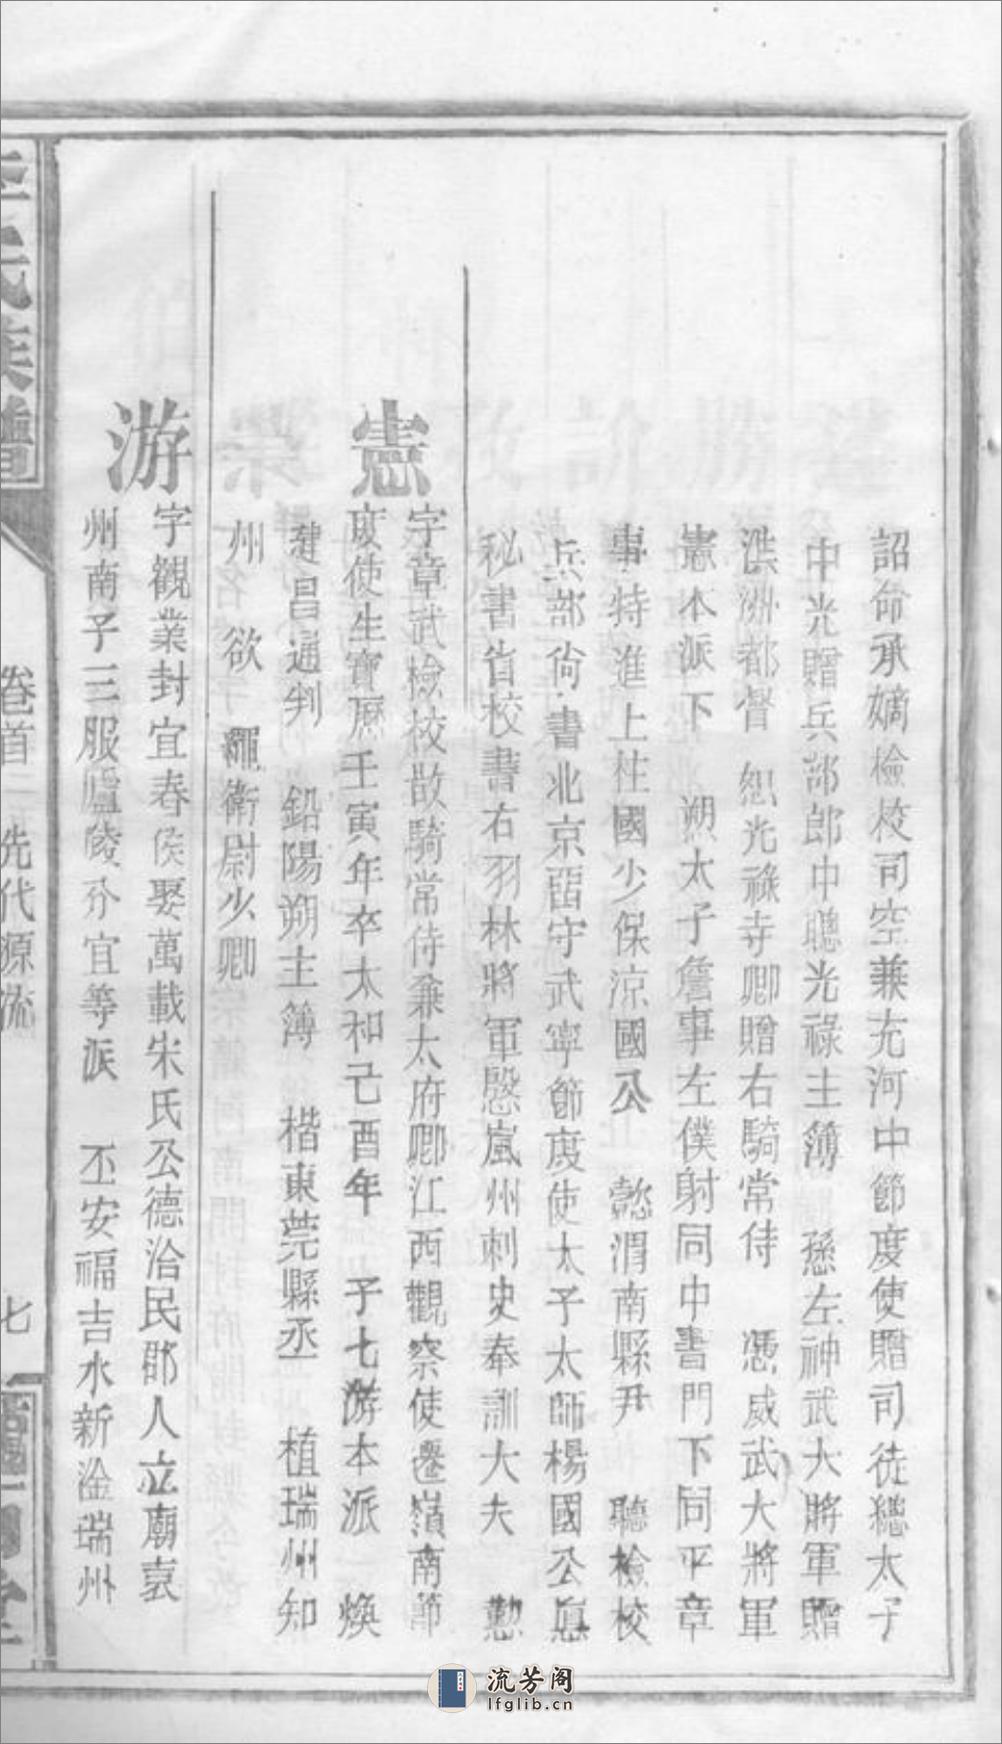 詔命承嫡檢校司空兼充河中節度使贈司徒 太子
中光贈兵部郎中聽光祿主簿 愻左神武大將軍贈
洪洲都督 恕光祿寺卿贈右騎常侍 憑威武大將軍
憲本派下 太子詹事左僕射同中書門下同平章
事特進上柱國少保涼國公 懿渭南縣尹 聽檢校
兵部尙書北京畱守武寧節度使太子太師楊國公
秘書省校書右羽林將軍慇嵐州刺史奉訓大夫 懃
憲
字章武檢校散騎常侍兼太府卿江西觀察使遷嶺南節
度使生寶曆壬寅年卒太和己酉年 子七游本派 煥
建昌通判 鉛陽朔主簿 楷東莞縣丞 植瑞州知
州 欲 衛尉少卿
游
字觀業封宜春侯娶萬載宋氏公德洽民郡人立廟袁
州南子三服廬陵分宜等派 丕安福吉水新淦瑞州
李氏族譜
卷首 先代源流
七